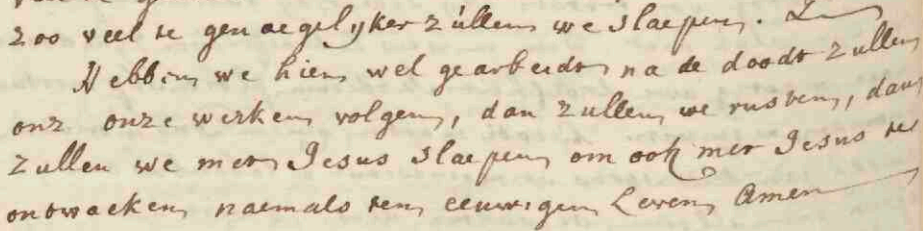 zoo veel te genoegelyker zullen we slaepen.
Hebben we hier wel gearbeidt na de doodt zullen
onz onze werken volgen, dan zullen we rusten, dan
zullen we met Jesus slaepen om ook met Jesus te
ontwaeken naemals ten eeuwigen Leven Amen